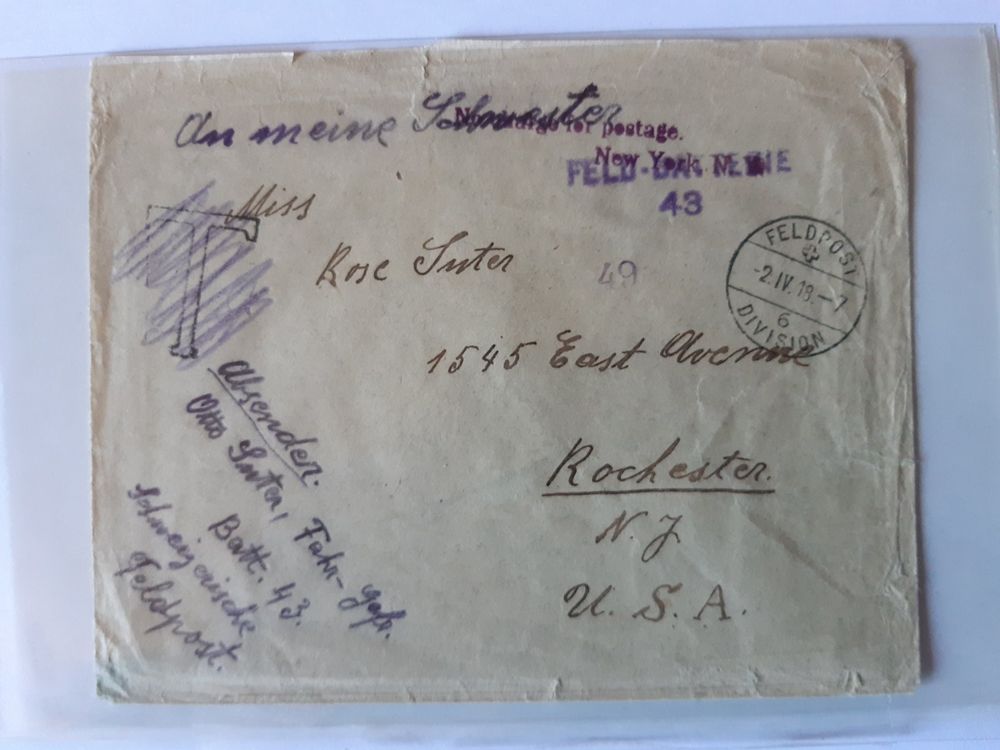 An meine Schwester
No charge for postage.
New York, N. Y.
FELD-BATTERIE
43
Miss
Rose Suter
49
FELDPOST
-2.IV.18.-7
6
DIVISION
T
1545 East Avenue
Rochester.
N. Y.
U. S. A.
Absender.
Otto Suter, Fahr-
Batt. 43.
Schweizerische
Feldpost.